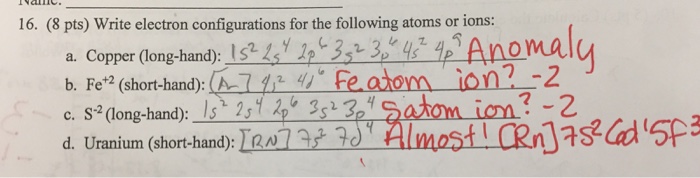 16. (8 pts) Write electron configurations for the following atoms or ions:
a. Copper (long-hand): 1s² 2s⁴ 2p⁶ 3s² 3p⁶ 4s² 4p⁹ Anomaly
b. Fe⁺² (short-hand): [Ar] 4s² 4d⁶ Fe atom ion? -2
c. S⁻² (long-hand): 1s² 2s⁴ 2p⁶ 3s² 3p⁴ S atom ion? -2
d. Uranium (short-hand): [RN] 7s² 7d⁴ Almost! [Rn]7s²6d¹5f³